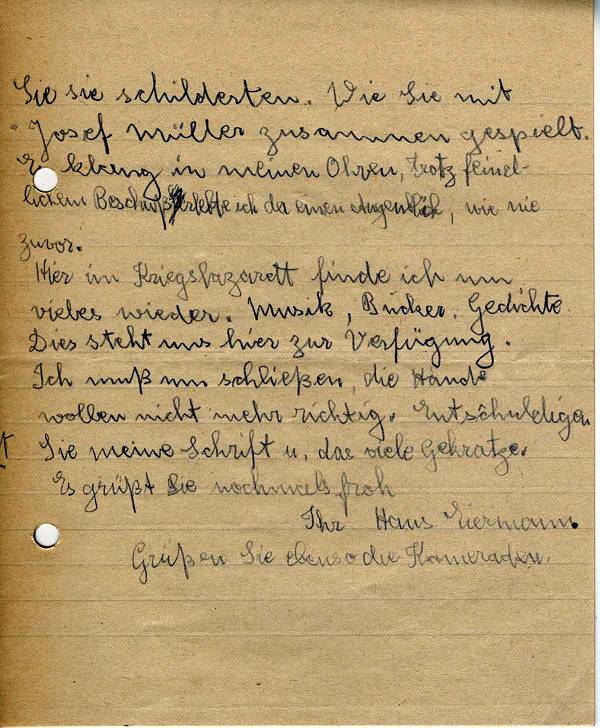 Sie sie schilderten. Wie Sie mit
Josef Müller zusammen gespielt.
Es klang in meinen Ohren, trotz feind-
lichem Beschuß erlebte ich da einen Augenblick, wie nie
zuvor.
Hier im Kriegslazarett finde ich nun
vieles wieder. Musik, Bücher, Gedichte.
Dies steht uns hier zur Verfügung.
Ich muß nun schließen, die Hände
wollen nicht mehr richtig. Entschuldigen
Sie meine Schrift u. das viele Gekratze.
Es grüßt Sie nochmals froh
Ihr Hans Eiermann.
Grüßen Sie ebenso die Kameraden.